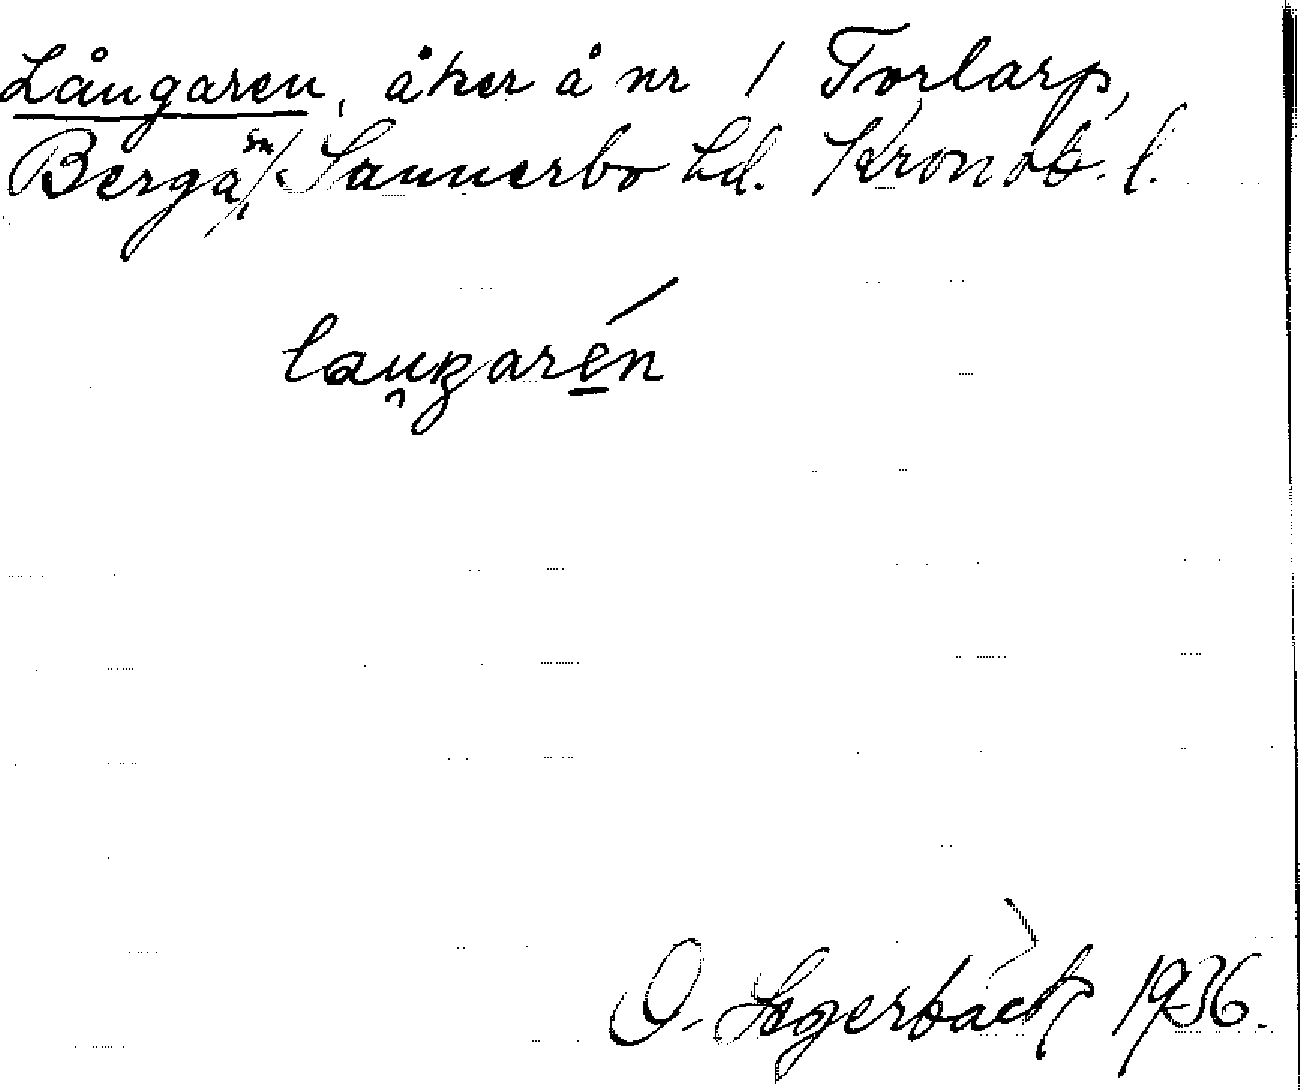 Långaren, åker å nr 1 Torlarp,
Berga sn, Sunnerbo hd. Kronob. l.
laugarén
O. Lagerbäck 1936.